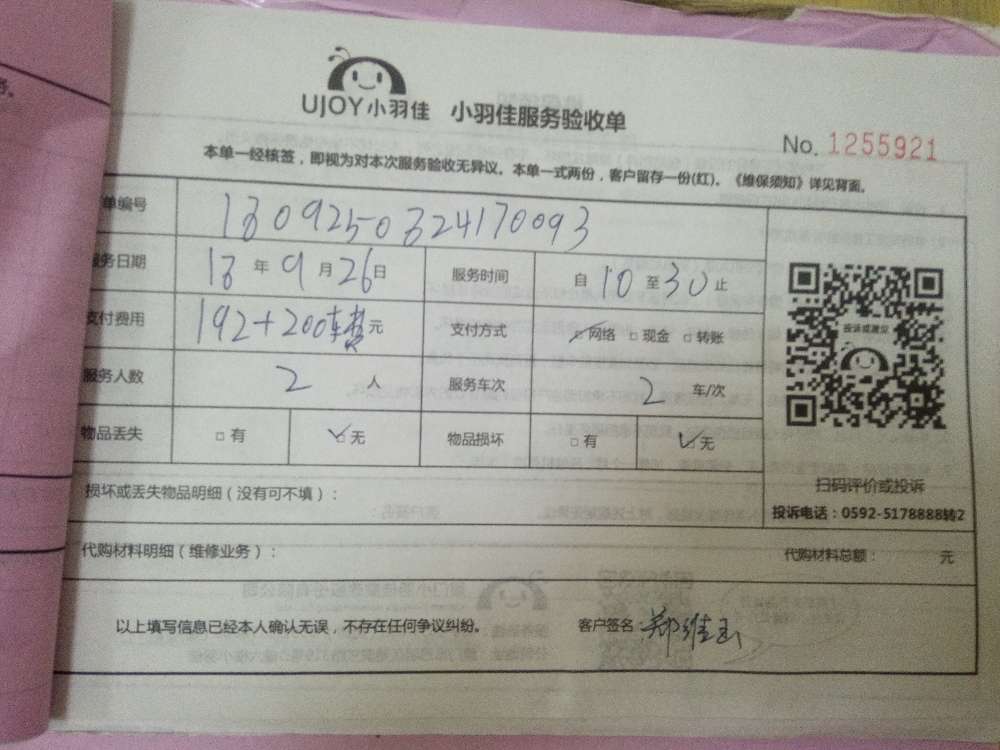 UJOY小羽佳 小羽佳服务验收单
No. 1255921
本单一经核签，即视为对本次服务验收无异议。本单一式两份，客户留存一份(红)。《维保须知》详见背面。
单编号 1809250324170093
服务日期 18 年 9 月 26 日 服务时间 自 10 至 30 止
支付费用 192+200车费元 支付方式 ☑网络 □现金 □转账
投诉或建议
服务人数 2 人 服务车次 2 车/次
物品丢失 □有 ☑无 物品损坏 □有 ☑无
扫码评价或投诉
损坏或丢失物品明细（没有可不填）：
投诉电话：0592-5178888转2
代购材料明细（维修业务）： 代购材料总额： 元
以上填写信息已经本人确认无误，不存在任何争议纠纷。 客户签名：郑维玉